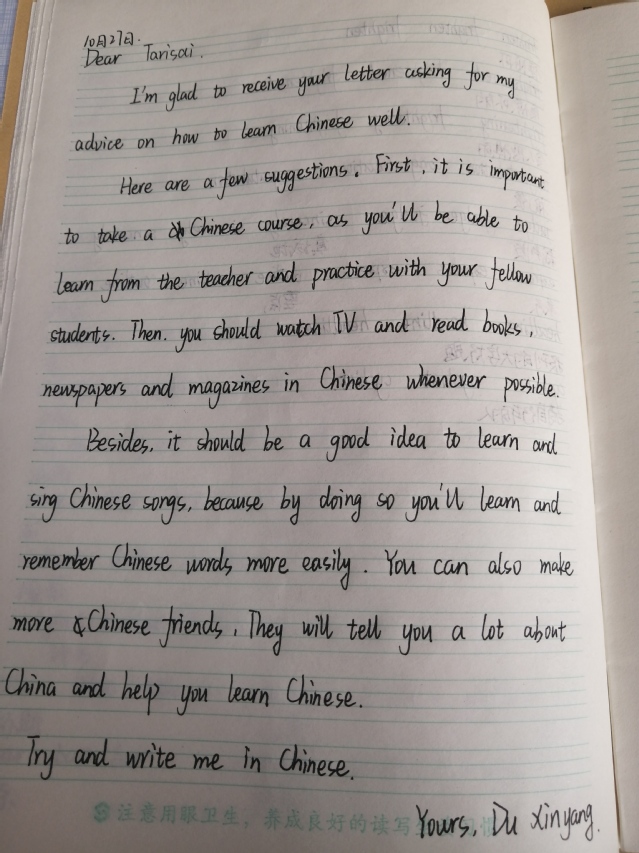 10月27日.
Dear Tarisai.
I'm glad to receive your letter asking for my
advice on how to learn Chinese well.
Here are a few suggestions. First, it is important
to take a Chinese course, as you'll be able to
learn from the teacher and practice with your fellow
students. Then. you should watch TV and read books,
newspapers and magazines in Chinese whenever possible.
Besides, it should be a good idea to learn and
sing Chinese songs, because by doing so you'll learn and
remember Chinese words more easily. You can also make
more Chinese friends, They will tell you a lot about
China and help you learn Chinese.
Try and write me in Chinese.
注意用眼卫生，养成良好的读写
Yours, Du Xinyang.